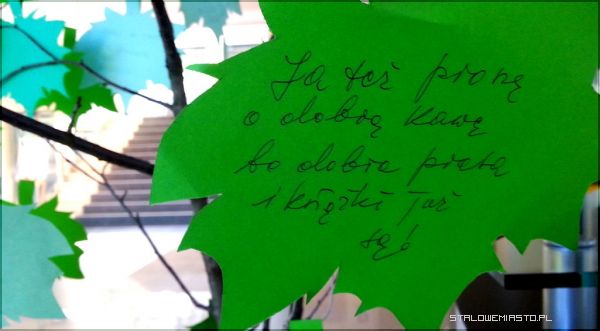 Ja też proszę
o dobrą kawę
bo dobra prasa
i książki już
są!
STALOWEMIASTO.PL